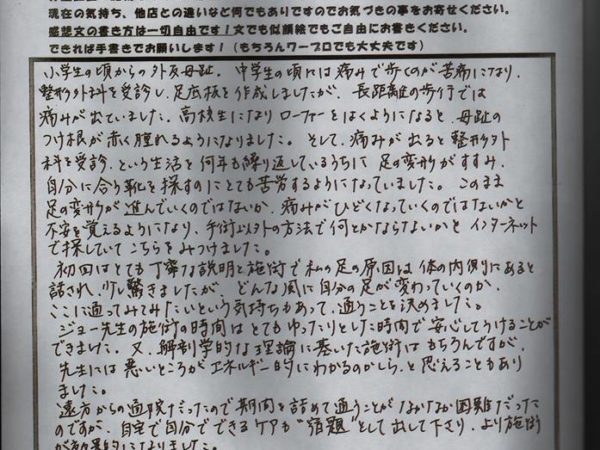 現在の気持ち、他店との違いなど何でもありですのでお気づきの事をお寄せください。
感想文の書き方は一切自由です！文でも似顔絵でもご自由にお書きください。
できれば手書きでお願いします！（もちろんワープロでも大丈夫です）
小学生の頃からの外反母趾。中学生の頃には痛みで歩くのが苦痛になり、
整形外科を受診し、足底板を作成しましたが、長距離の歩行では
痛みが出ていました。高校生になりローファーをはくようになると、母趾の
つけ根が赤く腫れるようになりました。そして、痛みが出ると整形外
科を受診、という生活を何年も繰り返しているうちに足の変形がすすみ、
自分に合う靴を探すのにとても苦労するようになっていました。このまま
足の変形が進んでいくのではないか、痛みがひどくなっていくのではないかと
不安を覚えるようになり、手術以外の方法で何とかならないかとインターネット
で探していてこちらをみつけました。
初回はとても丁寧な説明と施術で私の足の原因は体の内側にあると
話され、少し驚きましたが、どんな風に自分の足が変わっていくのか、
ここに通ってみてみたいという気持ちもあって、通うことを決めました。
ジョー先生の施術の時間はとてもゆったりとした時間で安心してうけることが
できました。又、解剖学的な理論に基いた施術はもちろんですが、
先生には悪いところがエネルギー的にわかるのかしら、と思えることもあり
ました。
遠方からの通院だったので期間を詰めて通うことがなかなか困難だった
のですが、自宅で自分でできるケアも"宿題"として出して下さり、より施術
が効果的になりました。